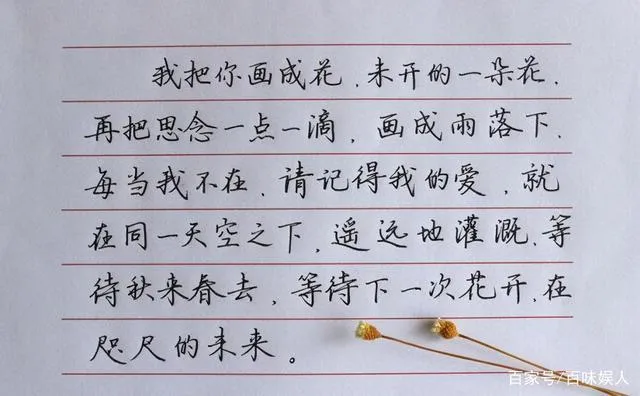 我把你画成花，未开的一朵花，
再把思念一点一滴，画成雨落下，
每当我不在，请记得我的爱，就
在同一天空之下，遥远地灌溉，等
待秋来春去，等待下一次花开，在
咫尺的未来。
百家号/百味娱人